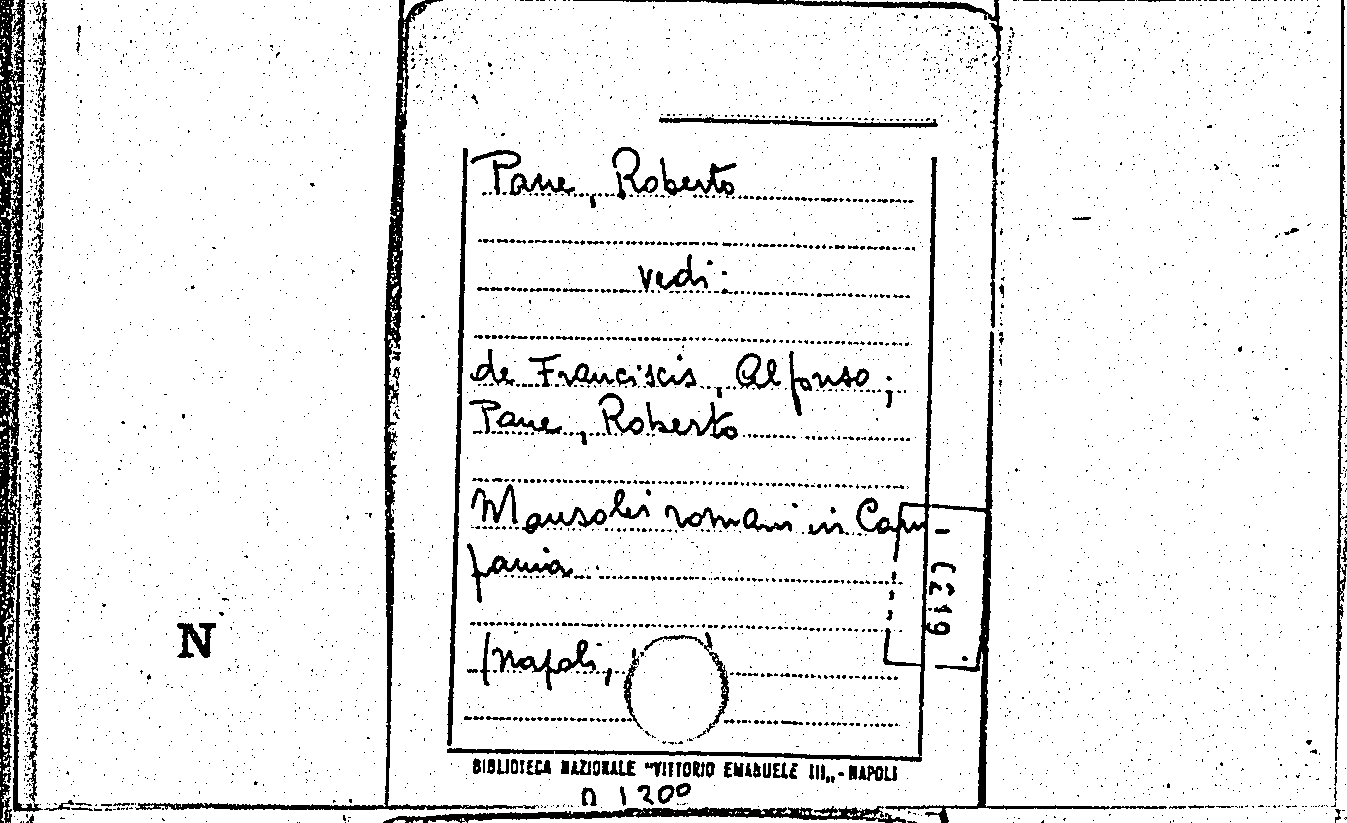 Pane, Roberto
vedi:
de Franciscis, Alfonso;
Pane, Roberto
Mausolei romani in Cam
pania
(Napoli,
N
BIBLIOTECA NAZIONALE "VITTORIO EMANUELE III„ - NAPOLI
n 1200